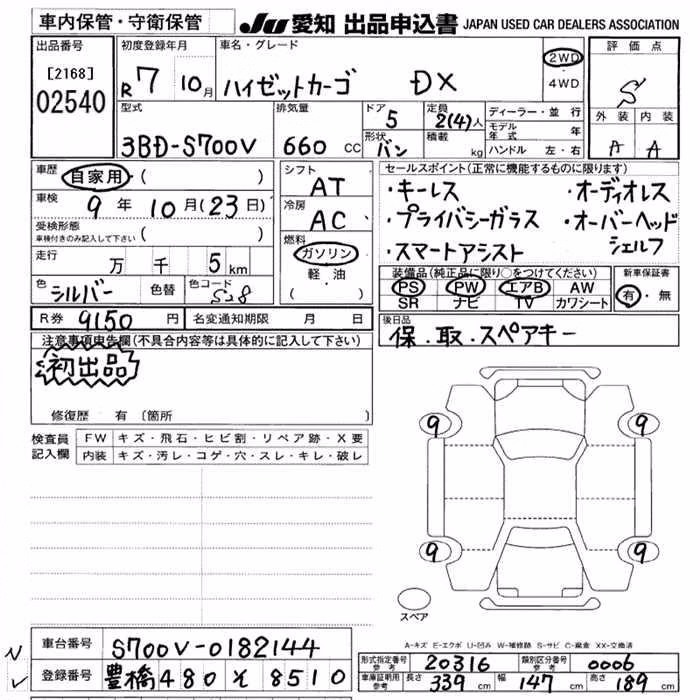 車内保管・守衛保管
JU 愛知 出品申込書 JAPAN USED CAR DEALERS ASSOCIATION
出品番号
[2168]
02540
初度登録年月
R7 10月
車名・グレード
ハイゼットカーゴ DX
2WD
4WD
評価点
S
外装 内装
A A
型式
3BD-S700V
排気量
660 CC
ドア
5
定員
2(4)人
形状
バン
積載
kg
ディーラー・並行
モデル年式 年
ハンドル 左・右
車歴
自家用・( )
車検
9年10月(23日)
受検形態
車検付きのみ記入して下さい ( )
走行
万 千 5km
色
シルバー
色替
色コード
S28
シフト
AT
冷房
AC
燃料
ガソリン
軽・油
( )
セールスポイント(正常に機能するものに限ります)
・キーレス ・オーディオレス
・プライバシーガラス ・オーバーヘッド
シェルフ
・スマートアシスト
装備品(純正品に限り○をつけてください)
PS PW エアB AW
SR ナビ TV カワシート
新車保証書
有・無
R券 9150円 名変通知期限 月 日
後日品
保・取・スペアキー
注意事項申告欄(不具合内容等は具体的に記入して下さい)
初出品
修復歴 有 〔箇所 〕
検査員
記入欄
FW キズ・飛石・ヒビ割・リペア跡・X要
内装 キズ・汚レ・コゲ・穴・スレ・キレ・破レ
9 9
9 9
スペア
A-キズ E-エクボ U-凹み W-補修跡 S-サビ C-腐食 XX-交換済
車台番号 S700V-0182144
登録番号 豊橋 480 そ 8510
形式指定番号 参考 20316 類別区分番号 参考 0006
車庫証明用 参考 長さ 339 cm 幅 147 cm 高さ 189 cm